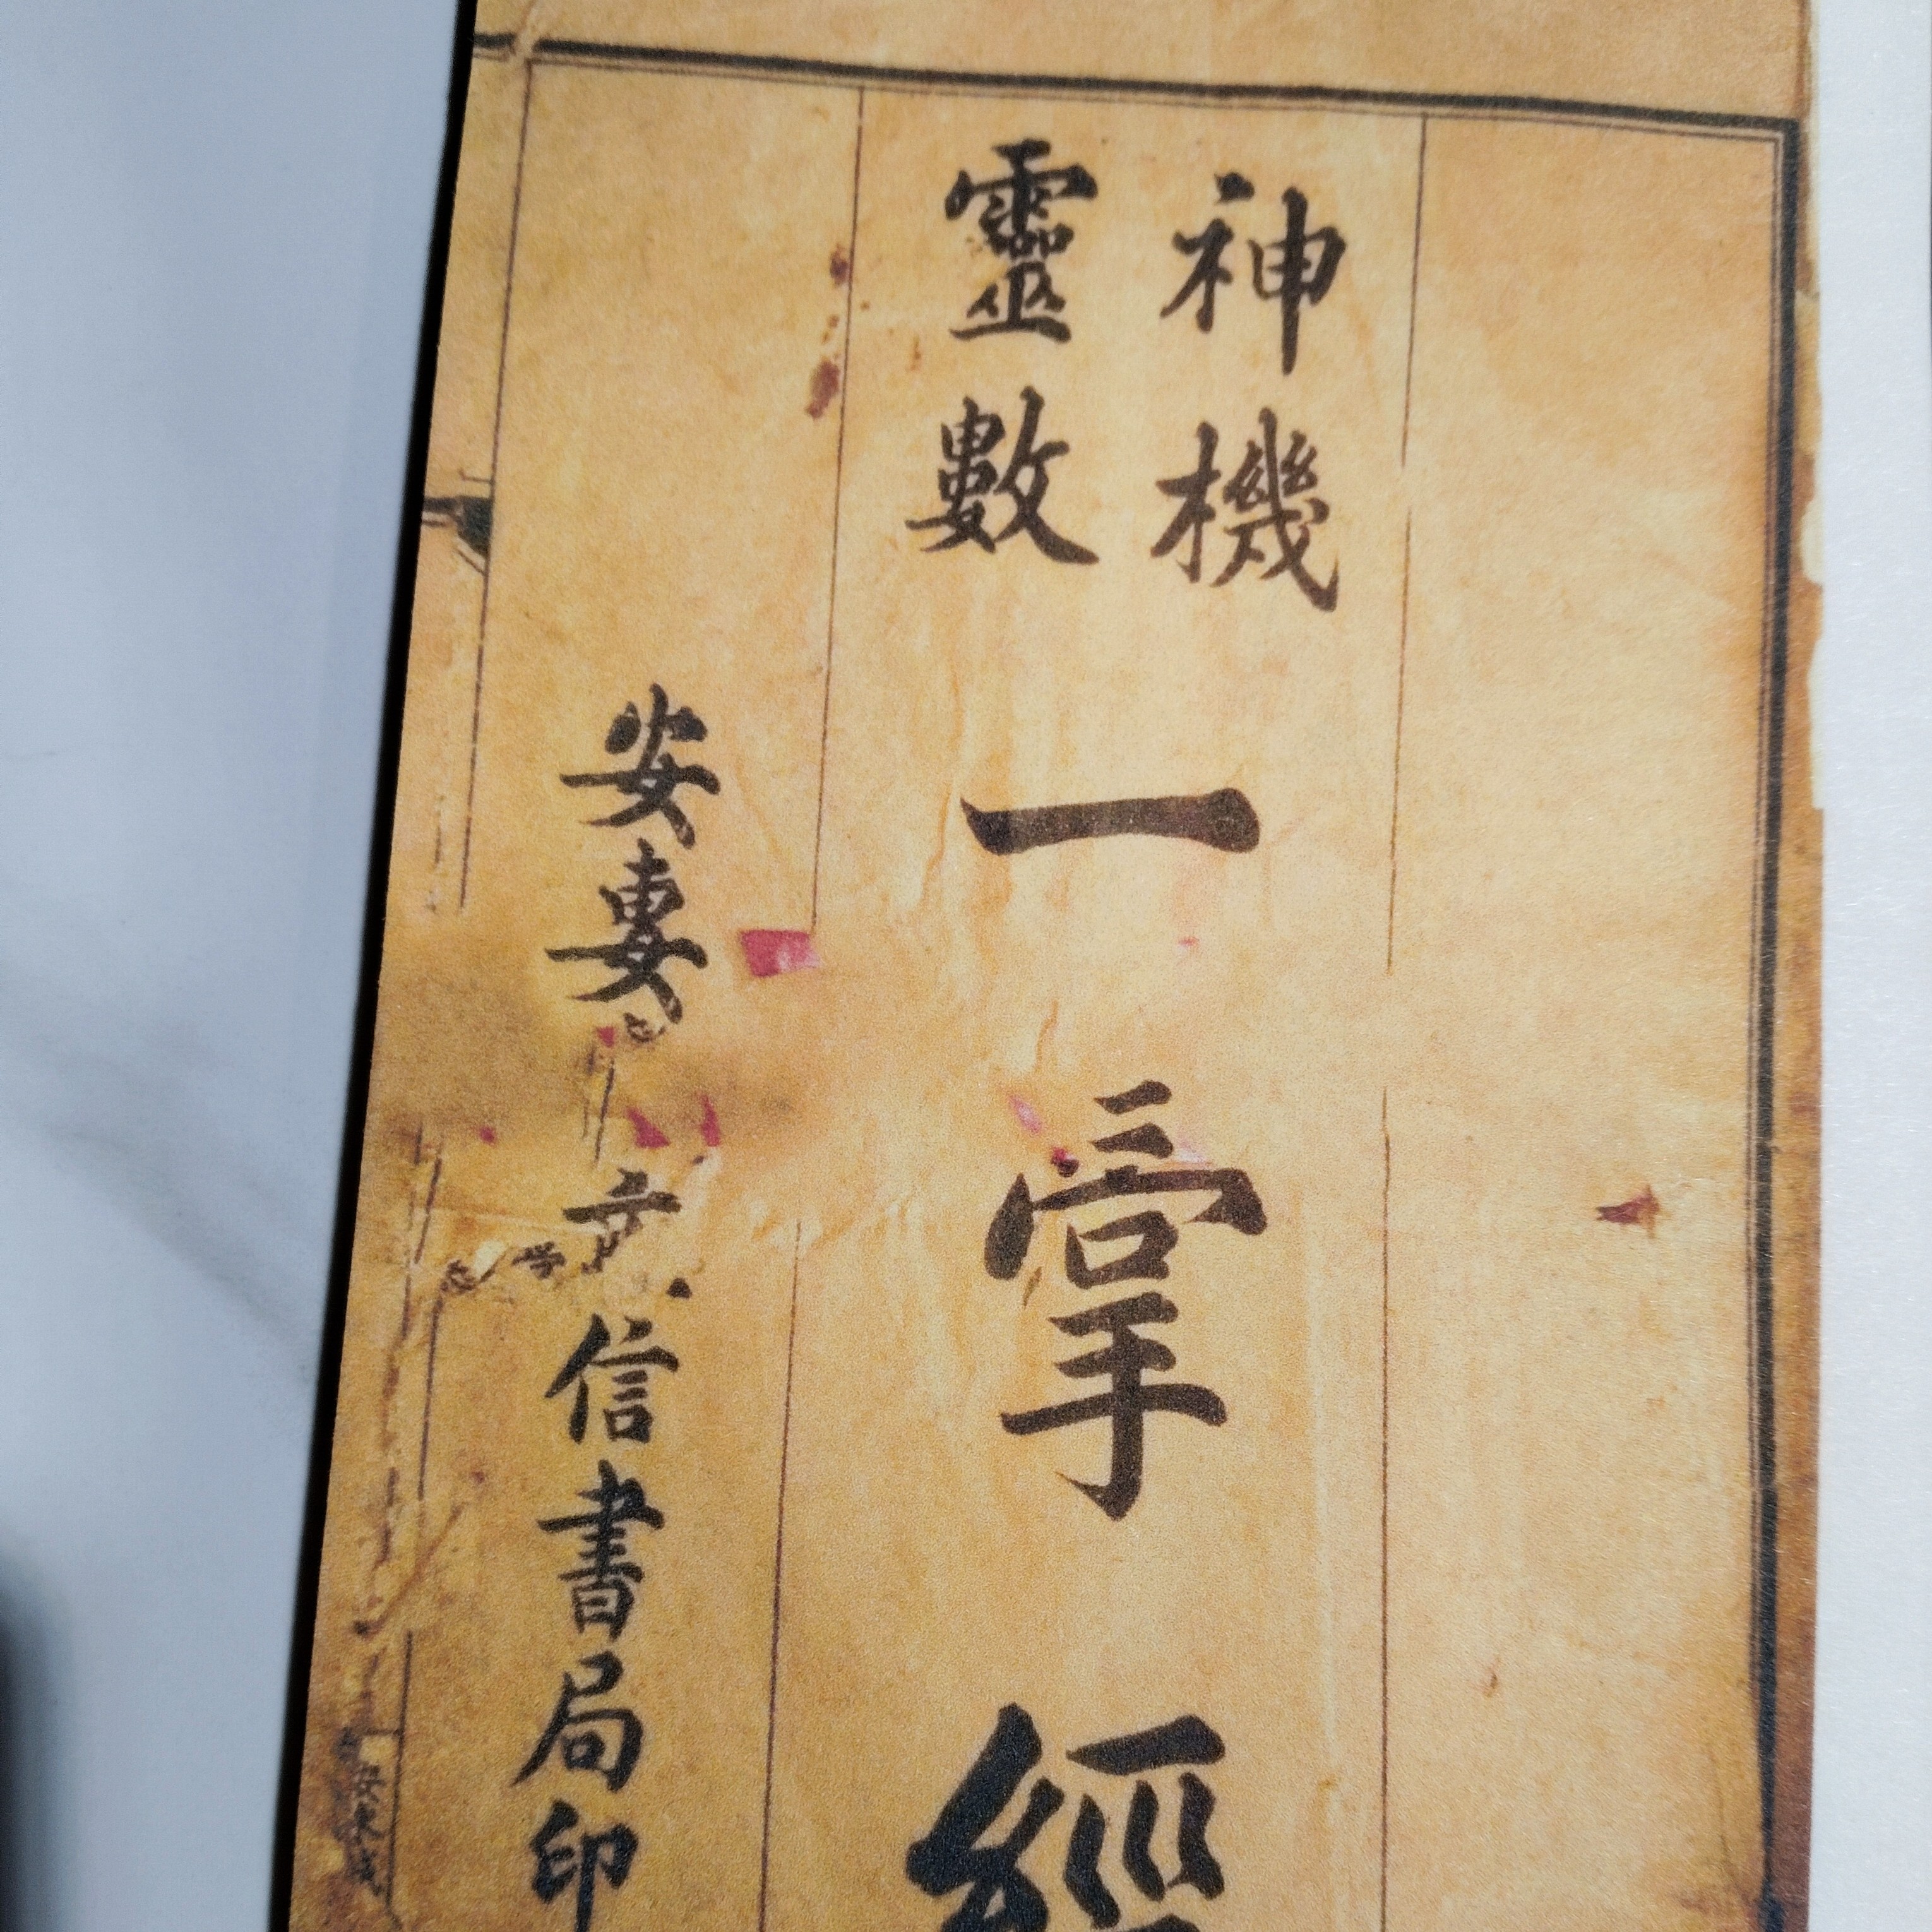 神機
靈數
一掌經
安文信書局印